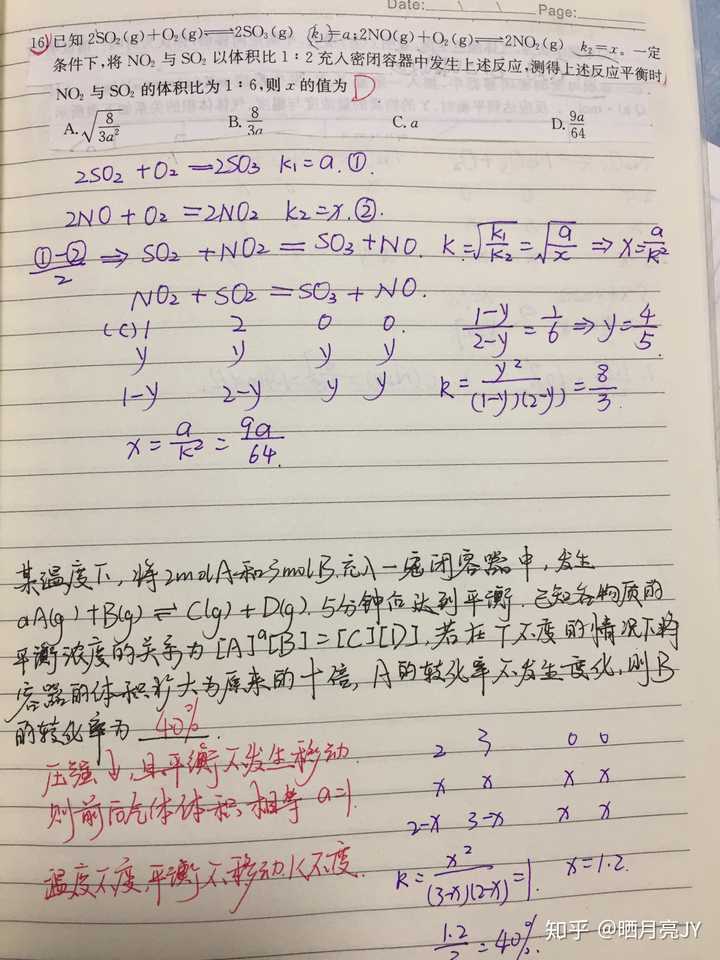 Date: Page:
16. 已知 2SO₂(g)+O₂(g)⇌2SO₃(g) k₁=a;2NO(g)+O₂(g)⇌2NO₂(g) k₂=x。一定
条件下,将 NO₂ 与 SO₂ 以体积比 1:2 充入密闭容器中发生上述反应,测得上述反应平衡时
NO₂ 与 SO₂ 的体积比为 1:6,则 x 的值为 D
A. √(8/3a²) B. 8/3a C. a D. 9a/64
2SO₂ + O₂ = 2SO₃ k₁=a. ①.
2NO + O₂ = 2NO₂ k₂=x. ②.
(①-②)/2 ⇒ SO₂ + NO₂ = SO₃ + NO. k=√(k₁/k₂)=√(a/x) ⇒ x=a/k²
NO₂ + SO₂ = SO₃ + NO.
(c) 1 2 0 0. (1-y)/(2-y)=1/6 ⇒ y=4/5
y y y y
1-y 2-y y y k=y²/((1-y)(2-y))=8/3.
x=a/k²=9a/64.
某温度下,将2molA和3molB充入一密闭容器中,发生
aA(g)+B(g)⇌C(g)+D(g). 5分钟后达到平衡.已知各物质的
平衡浓度的关系为[A]ᵃ[B]=[C][D],若在T不变的情况下将
容器的体积扩大为原来的十倍,A的转化率不发生变化,则B
的转化率为 40%.
压强↓,且平衡不发生移动
则前后气体体积相等 a=1.
温度不变,平衡不移动,K不变.
2 3 0 0
x x x x
2-x 3-x x x
k=x²/((3-x)(2-x))=1. x=1.2.
1.2/3=40%.
知乎 @晒月亮JY